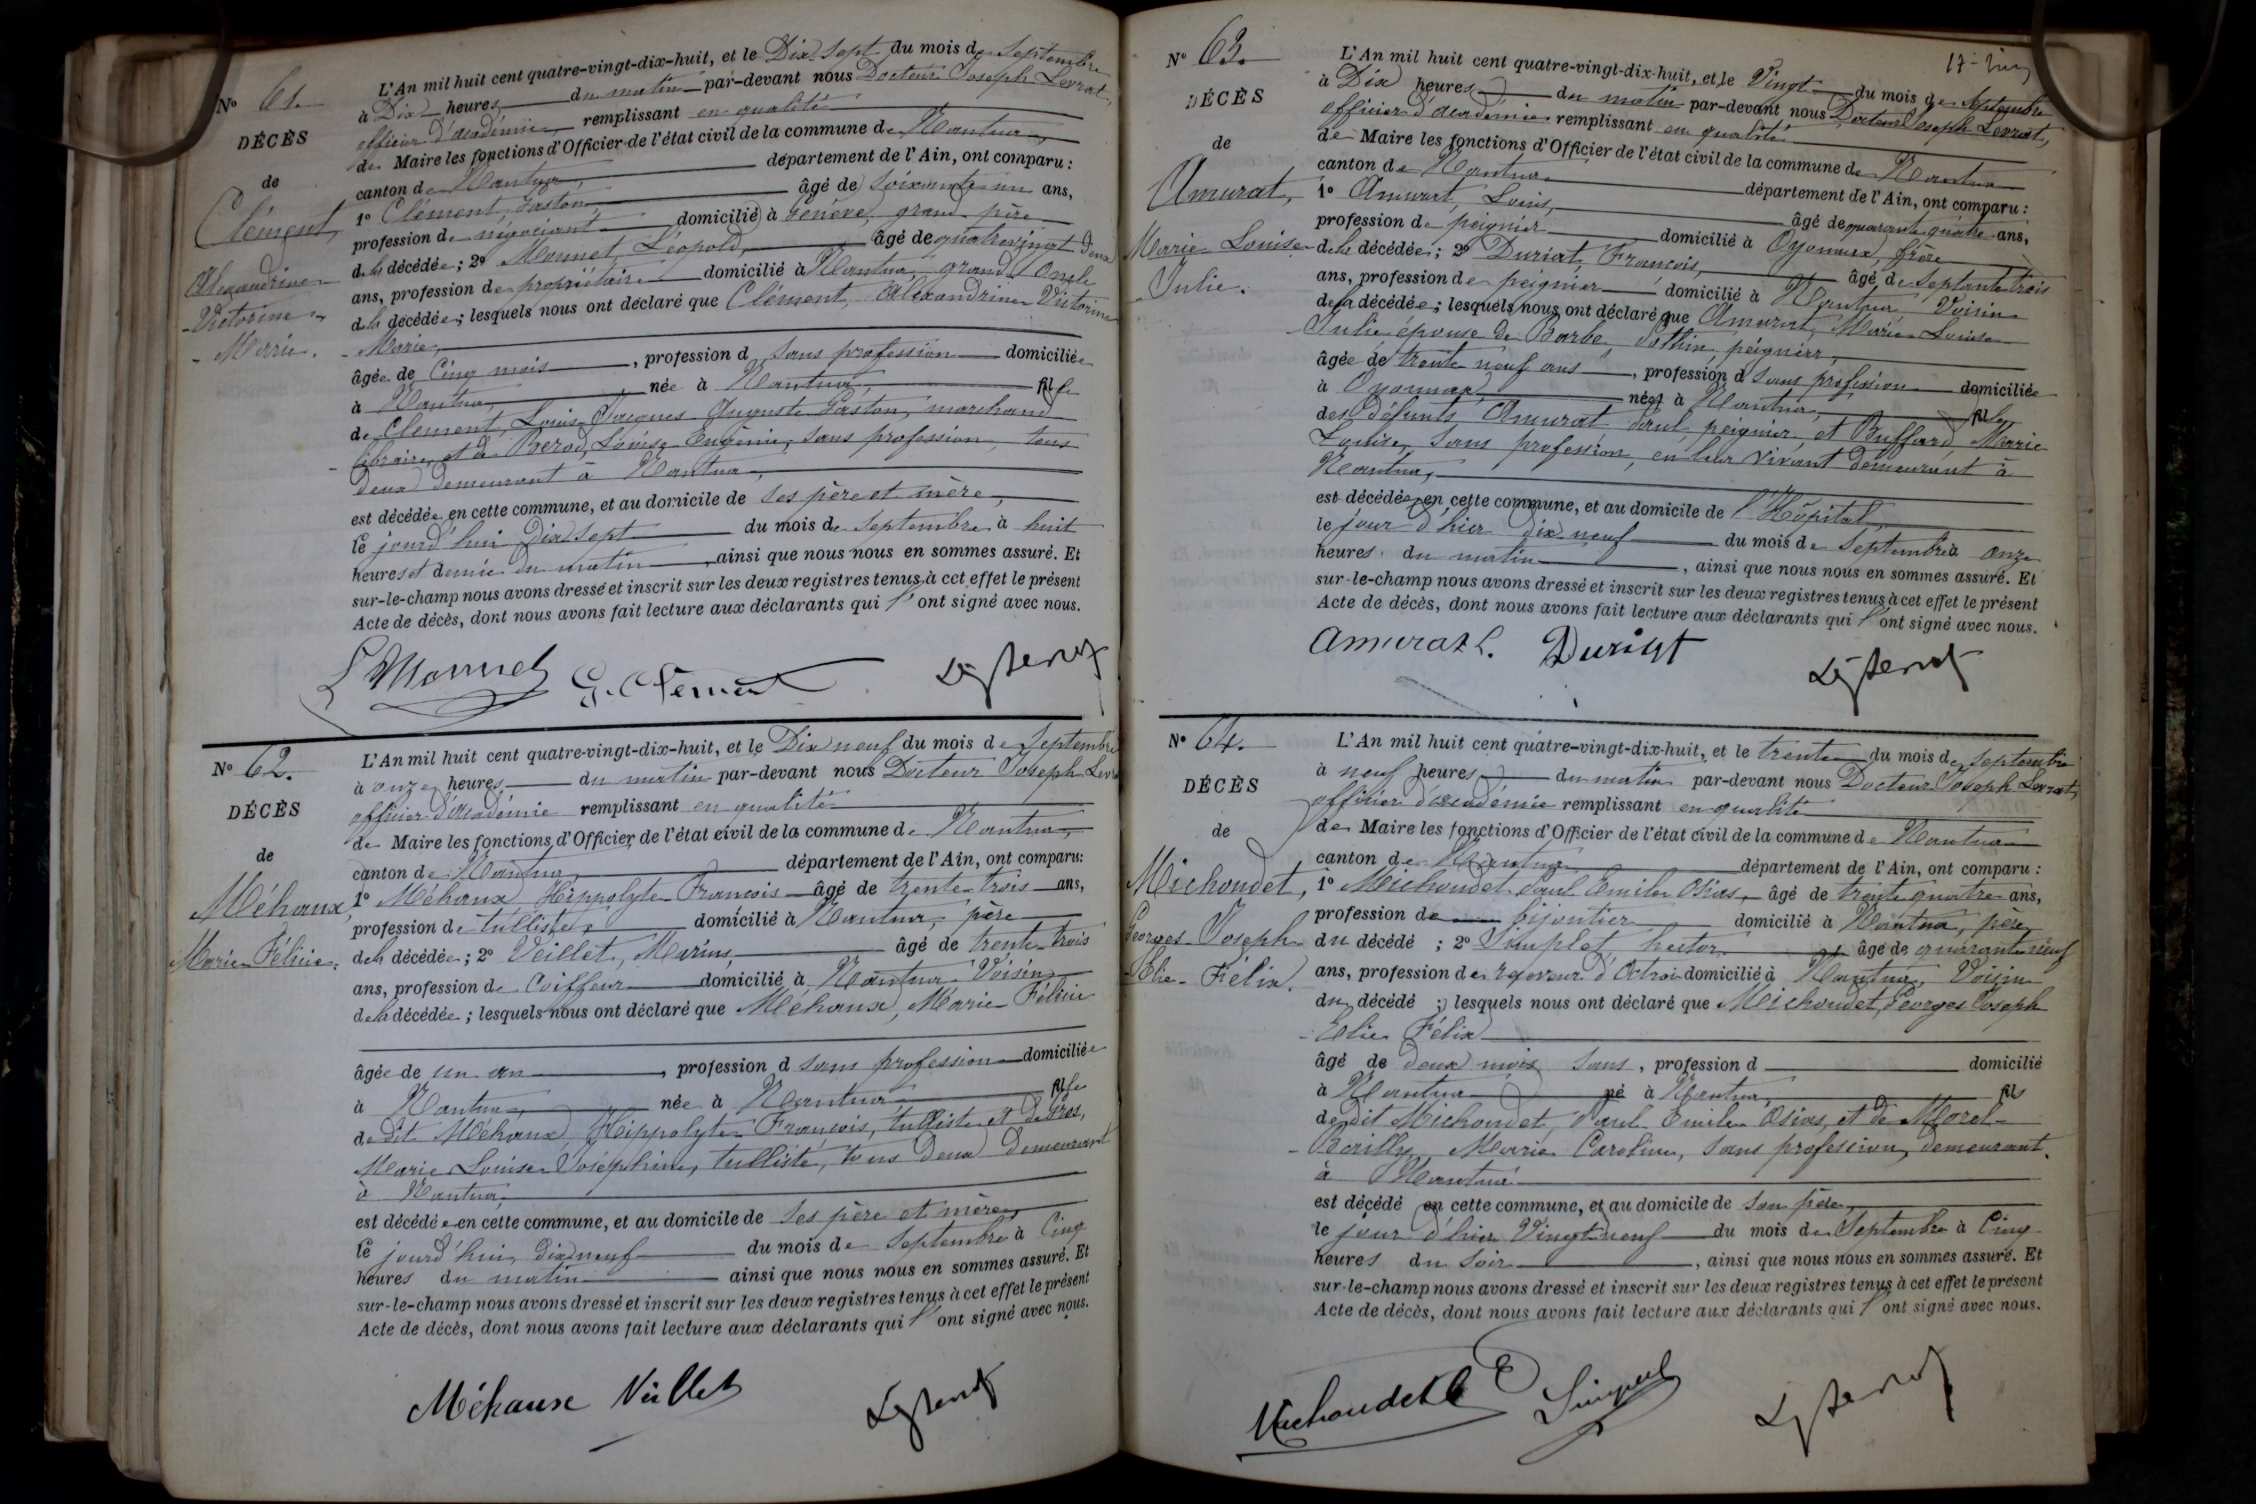 N° 61.
DÉCÈS
de
Clément,
Alexandrine
-Victorine-
- Marie.
L'An mil huit cent quatre-vingt-dix-huit, et le Dix sept du mois de Septembre
à Dix heures du matin par-devant nous Docteur Joseph Levrat,
officier d'académie remplissant en qualité
de Maire les fonctions d'Officier de l'état civil de la commune de Nantua,
canton de Nantua, département de l'Ain, ont comparu :
1° Clément, Gaston âgé de soixante un ans,
profession de négociant domicilié à Genève, grand père
de la décédée ; 2° Monnet, Léopold, âgé de quatrevingt deux
ans, profession de propriétaire domicilié à Nantua, grand Oncle
de la décédée ; lesquels nous ont déclaré que Clément, Alexandrine Victorine
- Marie,
âgée de Cinq mois , profession d sans profession domiciliée
à Nantua, née à Nantua, fille
de Clément, Louis Jacques Auguste Gaston, marchand
libraire, et de Berod, Louise Eugénie, sans profession, tous
deux demeurant à Nantua,
est décédée en cette commune, et au domicile de ses père et mère,
le jourd'hui Dix sept du mois de septembre à huit
heures et demie du matin , ainsi que nous nous en sommes assuré. Et
sur-le-champ nous avons dressé et inscrit sur les deux registres tenus à cet effet le présent
Acte de décès, dont nous avons fait lecture aux déclarants qui l'ont signé avec nous.
L Monnet G. Clément
N° 62.
DÉCÈS
de
Méhaux,
Marie Félicie.
L'An mil huit cent quatre-vingt-dix-huit, et le Dix neuf du mois de Septembre
à onze heures du matin par-devant nous Docteur Joseph Levrat
officier d'académie remplissant en qualité
de Maire les fonctions d'Officier de l'état civil de la commune de Nantua,
canton de Nantua, département de l'Ain, ont comparu:
1° Méhaux Hippolyte François âgé de trente trois ans,
profession de tulliste, domicilié à Nantua, père
de la décédée ; 2° Veillet, Marius, âgé de trente trois
ans, profession de Coiffeur domicilié à Nantua Voisin
de la décédée ; lesquels nous ont déclaré que Méhaux, Marie Félicie
âgée de un an , profession d sans profession domiciliée
à Nantua, née à Nantua fille
de dit Méhaux, Hippolyte François, tulliste et de Gros,
Marie Louise Joséphine, tulliste, tous deux demeurant
à Nantua,
est décédée en cette commune, et au domicile de ses père et mère,
le jourd'hui dix neuf du mois de Septembre à Cinq
heures du matin ainsi que nous nous en sommes assuré. Et
sur-le-champ nous avons dressé et inscrit sur les deux registres tenus à cet effet le présent
Acte de décès, dont nous avons fait lecture aux déclarants qui l'ont signé avec nous.
Méhaux Veillet
N° 63.
DÉCÈS
de
Amurat,
Marie Louise
Julie.
L'An mil huit cent quatre-vingt-dix-huit, et le Vingt du mois de Septembre
à Dix heures du matin par-devant nous Docteur Joseph Levrat,
officier d'académie remplissant en qualité
de Maire les fonctions d'Officier de l'état civil de la commune de Nantua
canton de Nantua département de l'Ain, ont comparu :
1° Amurat, Louis, âgé de quarante quatre ans,
profession de peignier domicilié à Oyonnax, frère
de la décédée ; 2° Duriat, François, âgé de septante trois
ans, profession de peignier domicilié à Nantua Voisin
de la décédée ; lesquels nous ont déclaré que Amurat, Marie Louise
Julie épouse de Barbe, Pothin, peignier,
âgée de trente neuf ans , profession d sans profession domiciliée
à Oyonnax, née à Nantua, fille
des défunts Amurat Paul, peignier, et Buffard Marie
Louise, sans profession, en leur vivant demeurant à
Nantua,
est décédée en cette commune, et au domicile de l'Hôpital
le jour d'hier dix-neuf du mois de Septembre à onze
heures du matin , ainsi que nous nous en sommes assuré. Et
sur-le-champ nous avons dressé et inscrit sur les deux registres tenus à cet effet le présent
Acte de décès, dont nous avons fait lecture aux déclarants qui l'ont signé avec nous.
Amurat L. Duriat
N° 64.
DÉCÈS
de
Michoudet,
Georges Joseph
Elie Félix.
L'An mil huit cent quatre-vingt-dix-huit, et le trente du mois de septembre
à neuf heures du matin par-devant nous Docteur Joseph Levrat,
officier d'académie remplissant en qualité
de Maire les fonctions d'Officier de l'état civil de la commune de Nantua
canton de Nantua département de l'Ain, ont comparu :
1° Michoudet Paul Emile Osias, âgé de trente quatre ans,
profession de bijoutier domicilié à Nantua, père
du décédé ; 2° Simplet hector âgé de quarante neuf
ans, profession de receveur d'Octroi domicilié à Nantua, Voisin
du décédé ; lesquels nous ont déclaré que Michoudet Georges Joseph
- Elie Félix
âgé de deux mois sans, profession d domicilié
à Nantua né à Nantua, fils
de dit Michoudet, Paul Emile Osias, et de Morel-
- Bailly, Marie Caroline, sans profession, demeurant
à Nantua
est décédé en cette commune, et au domicile de son père,
le jour d'hier Vingt neuf du mois de Septembre à Cinq
heures du soir , ainsi que nous nous en sommes assuré. Et
sur-le-champ nous avons dressé et inscrit sur les deux registres tenus à cet effet le présent
Acte de décès, dont nous avons fait lecture aux déclarants qui l'ont signé avec nous.
Michoudet